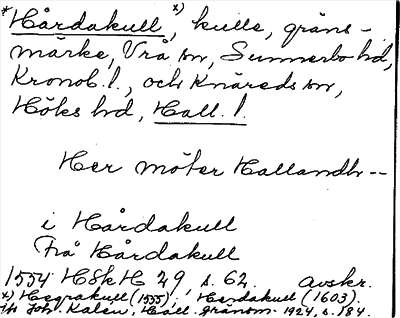 *Hårdakull x), kulle, gräns-
märke, Vrå sn, Sunnerbo hd,
Kronob. l., och Knäreds sn,
Höks hd, Hall. l.
Her möter Hallandh --
i Hårdakull
Frå Hårdakull
1554 HSkH 29, s. 62. avskr.
x) Hegrakull (1555), Herdakull (1603).
Joh. Kalén, Hall. gränom. 1924, s. 184.